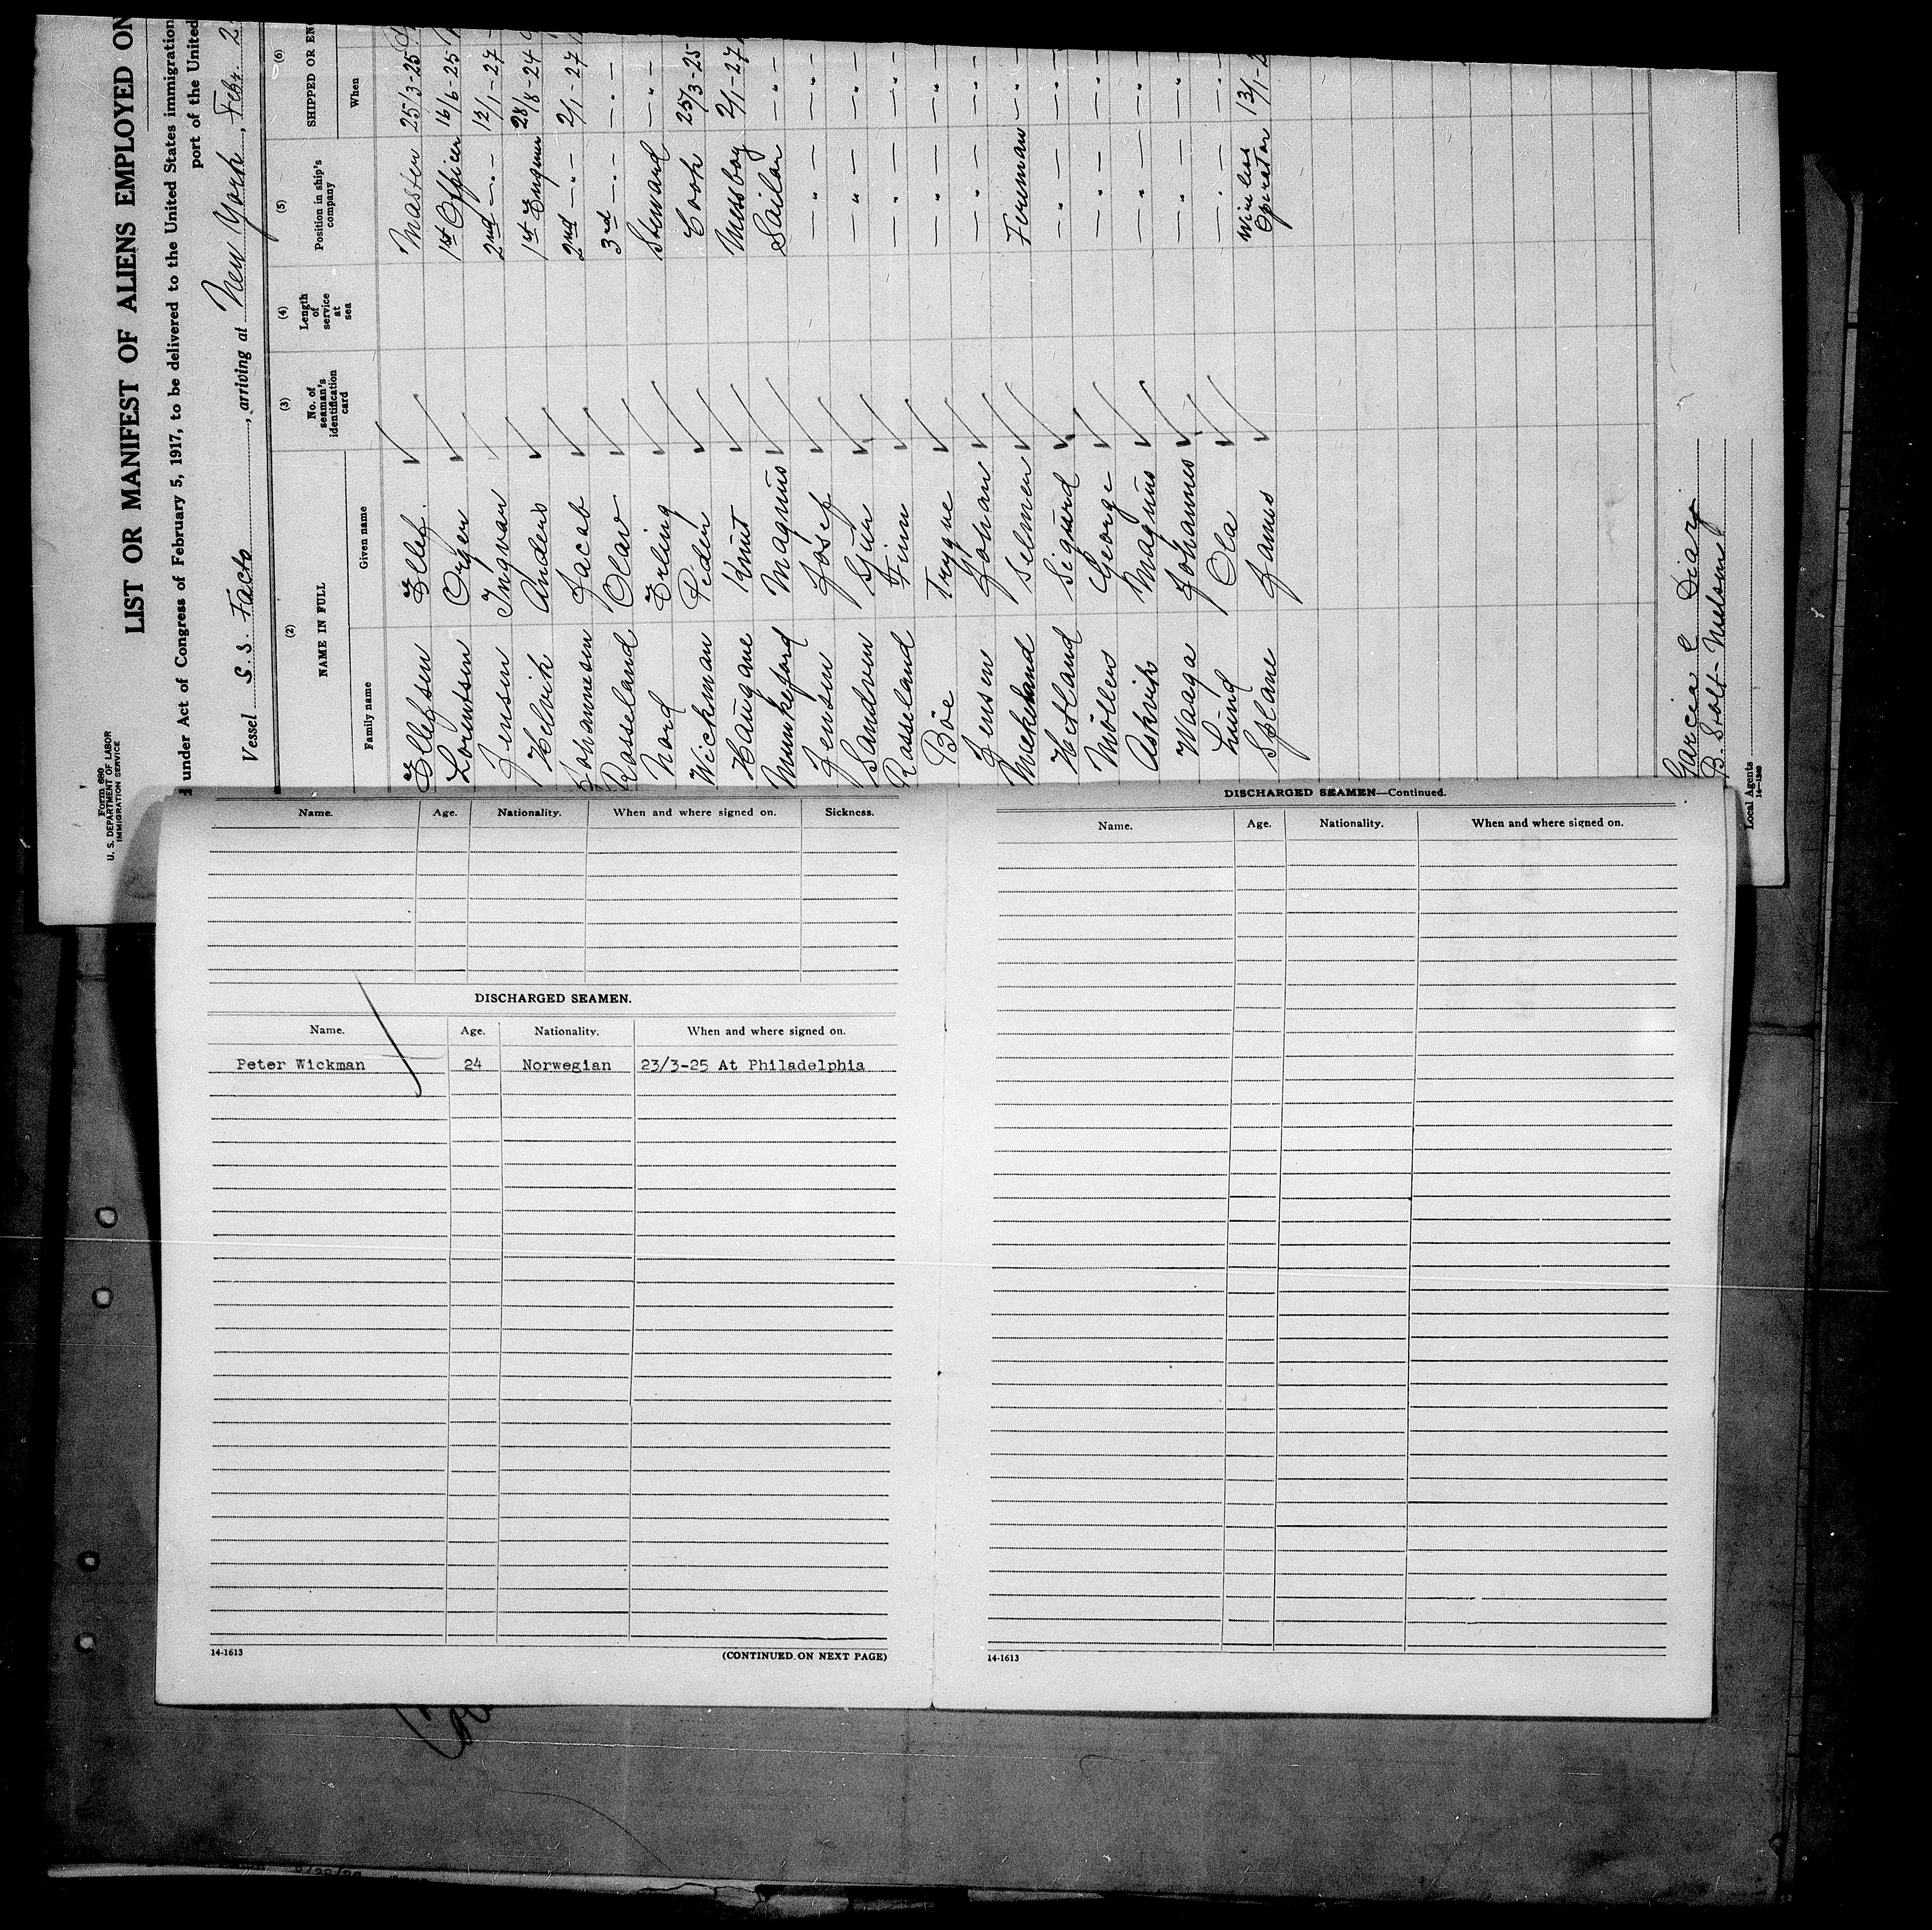 Form 680
U. S. DEPARTMENT OF LABOR
IMMIGRATION SERVICE
LIST OR MANIFEST OF ALIENS EMPLOYED ON
under Act of Congress of February 5, 1917, to be delivered to the United States immigration
port of the United
Vessel S.S. Facto, arriving at New York, Feby. 2
(2) (3) (4) (5) (6)
NAME IN FULL No. of seaman's identification card Length of service at sea Position in ship's company SHIPPED OR EN
Family name Given name When
Ellefsen Ellef. Master 25/3-25
Lorentsen Örgen 1st Officer 16/6-25
Jensen Ingvar 2nd -"- 12/1-27
Helvik Anders 1st Engineer 28/8-24
Johannesen Jacob 2nd -"- 2/1-27
Rosseland Olav 3rd -"- -"-
Nord Erling Steward -"-
Wickman Peder Cook 25/3-25
Haugane Knut Messboy 2/1-27
Munkejord Magnus Sailor -"-
Jensen Josef -"- -"-
Sandven Gjün -"- -"-
Rosseland Finn -"- -"-
Böe Trygve -"- -"-
Jensen Johan -"- -"-
Selmer Fireman -"-
Hetland Sigurd -"- -"-
Möller George -"- -"-
Askvik Magnus -"- -"-
Waaga Johannes -"- -"-
Lund Ola -"- -"-
James Wireless Operator 13/1-2
Garcia & Diaz
B.
Local Agents
Name. Age. Nationality. When and where signed on. Sickness.
DISCHARGED SEAMEN.
Name. Age. Nationality. When and where signed on.
Peter Wickman 24 Norwegian 23/3-25 At Philadelphia
14-1613 (CONTINUED ON NEXT PAGE)
DISCHARGED SEAMEN—Continued.
Name. Age. Nationality. When and where signed on.
14-1613